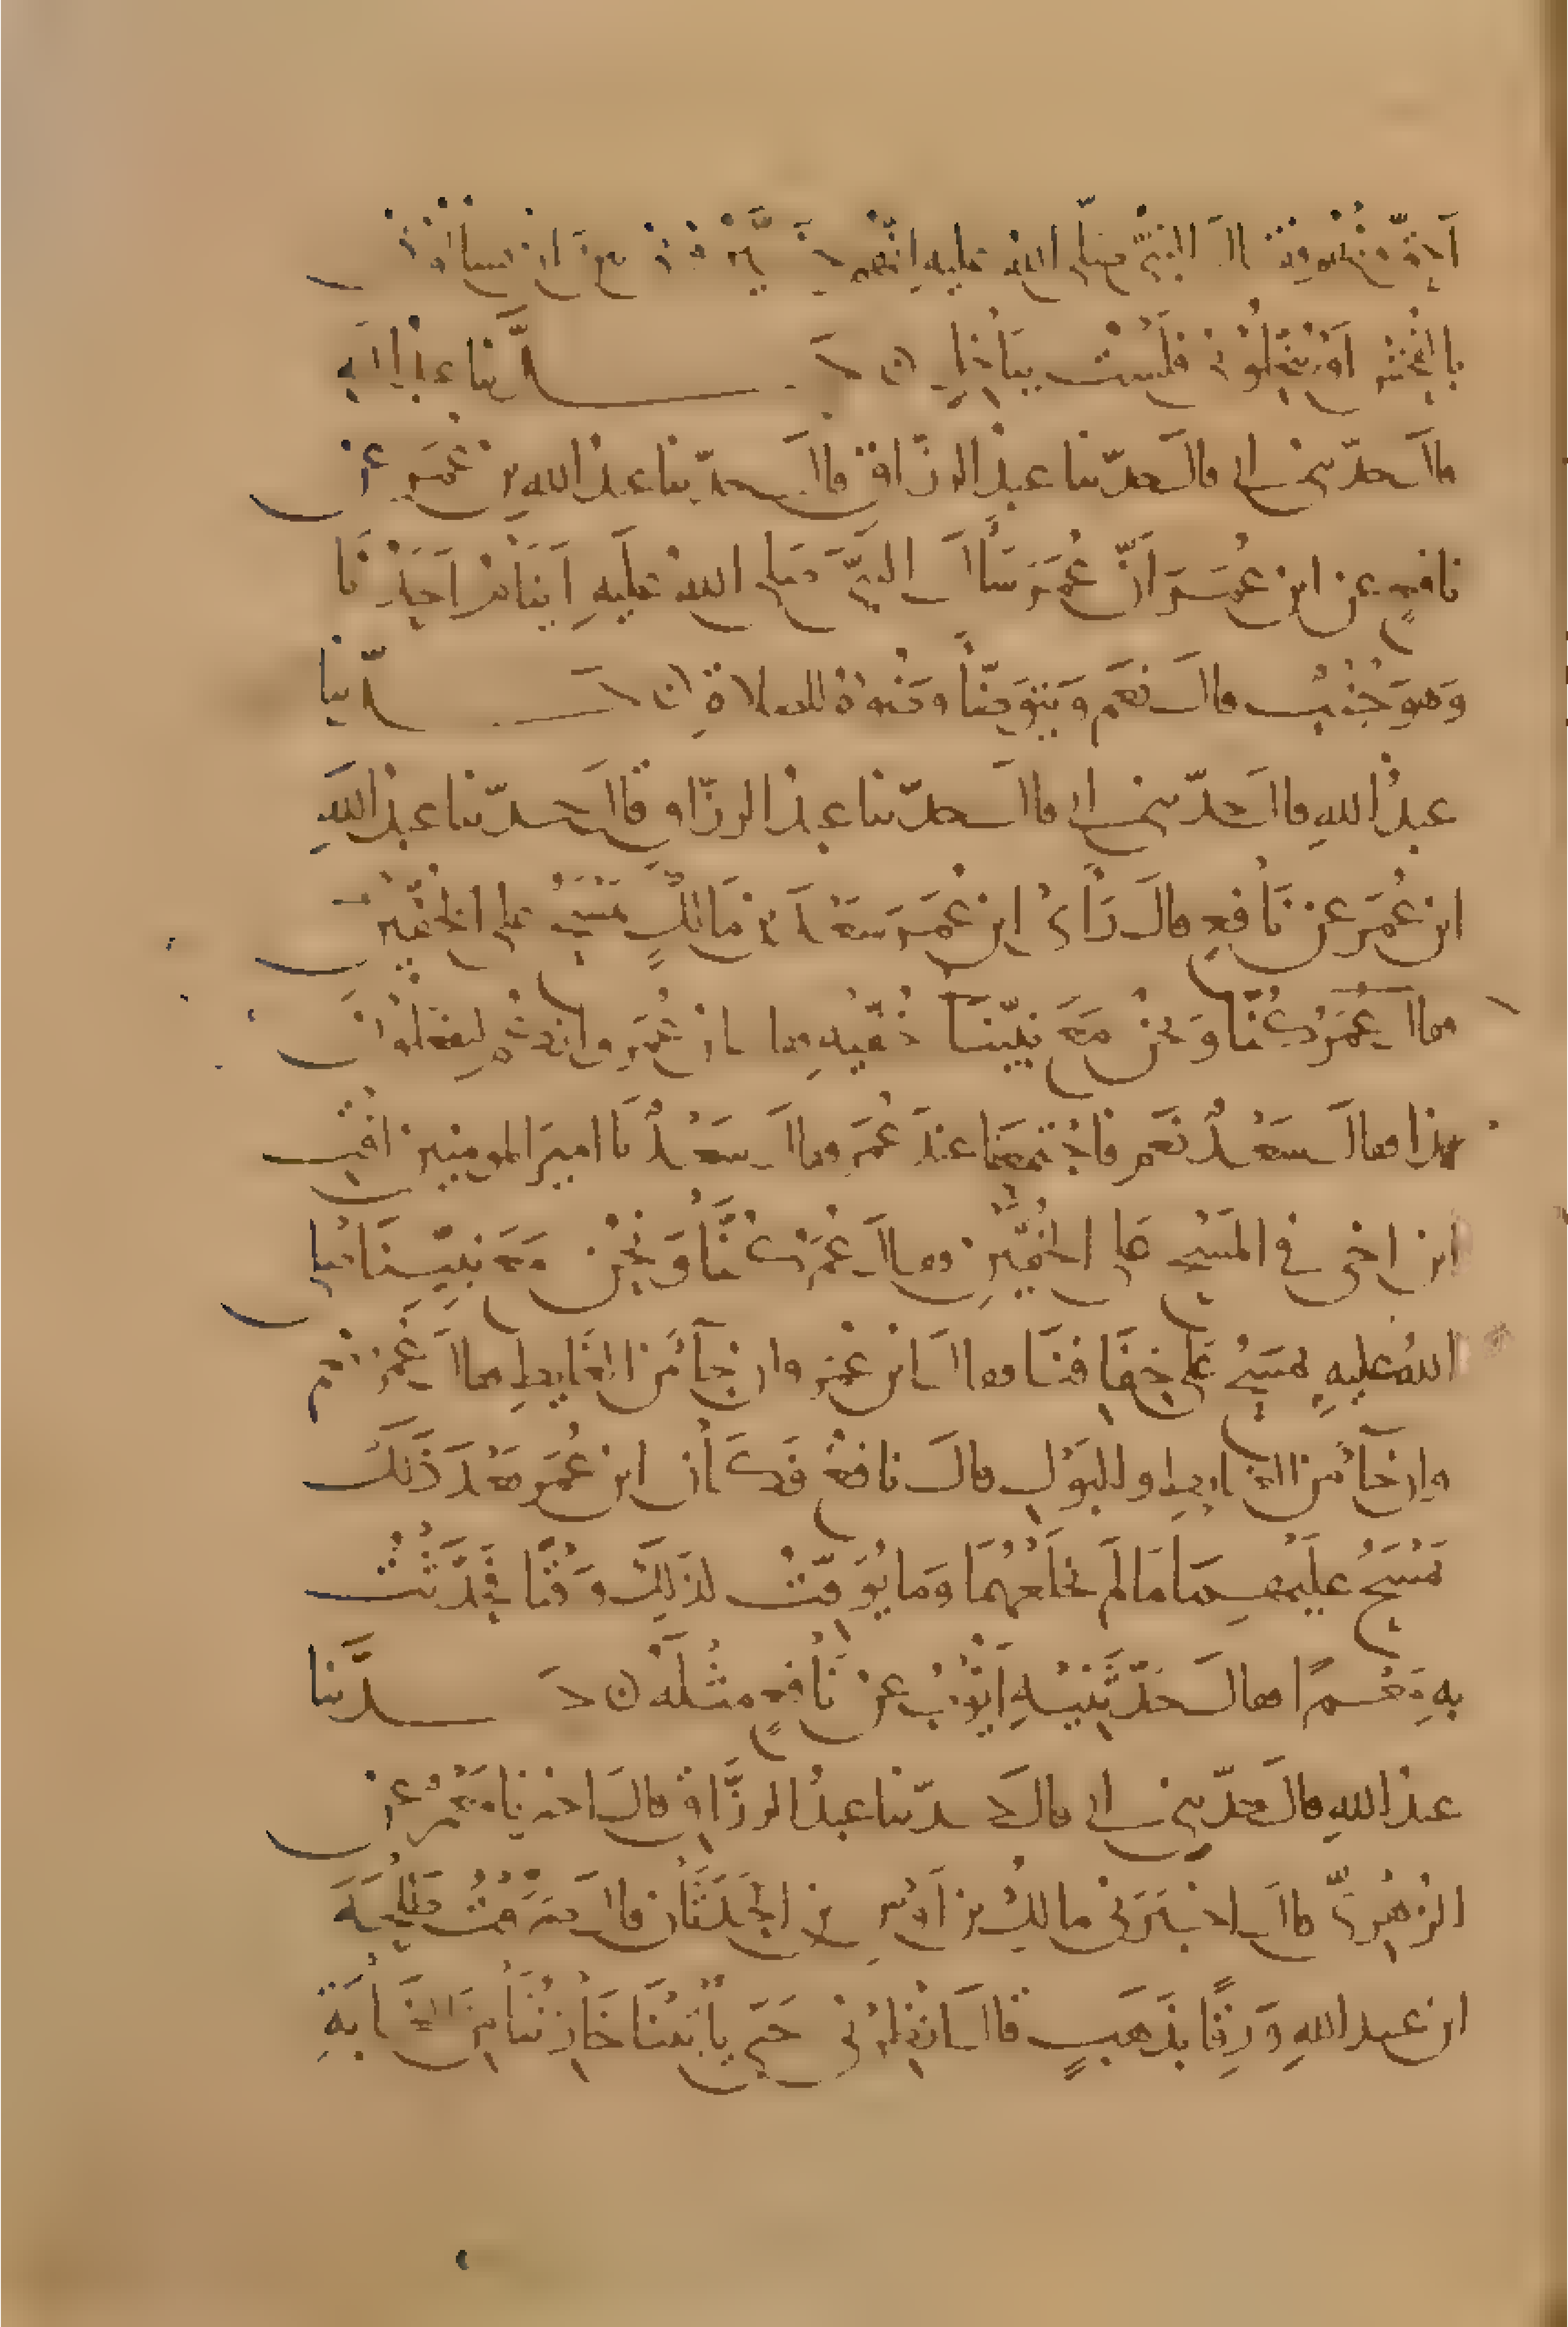 احق منهم فقال النبي صلى الله عليه انهم خيروني بين ان يسألوني
بالفحش او يبخلوني فلست بباخل ن حـ ـدثنا عبد الله
قال حدثني ابي قال حدثنا عبد الرزاق قال حدثنا عبد الله بن عمر عن
نافع عن ابن عمر ان عمر سأل النبي صلى الله عليه اينام احدنا
وهو جنب قال نعم ويتوضأ وضوءه للصلاة ن حـ ـدثنا
عبد الله قال حدثني ابي قال حدثنا عبد الرزاق قال حدثنا عبد الله
ابن عمر عن نافع قال رأى ابن عمر سعد بن مالك يمسح على الخفين
فقال عمر كنا ونحن مع نبينا خفيه فقال ابن عمر وانكم لتفعلون
هذا فقال سعد نعم فاجتمعنا عند عمر فقال سعد يا امير المومنين افت
ابن اخي في المسح على الخفين فقال عمر كنا ونحن مع نبينا صلى
الله عليه نمسح على خفافنا فقال ابن عمر وان جآء من الغايط فقال عمر نعم
وان جآء من الغايط والبول قال نافع فكان ابن عمر بعد ذلك
يمسح عليهما ما لم يخلعهما وما يوقت لذلك وقتا فحدثت
به معمرا فقال حدثنيه ايوب عن نافع مثله ن حـ ـدثنا
عبد الله قال حدثني ابي قال حدثنا عبد الرزاق قال اخبرنا معمر عن
الزهري قال اخبرني مالك بن اوس بن الحدثان قال صرفت طلحة
ابن عبد الله ورقا بذهب قال انظرني حتى يأتينا خازننا من الغابة